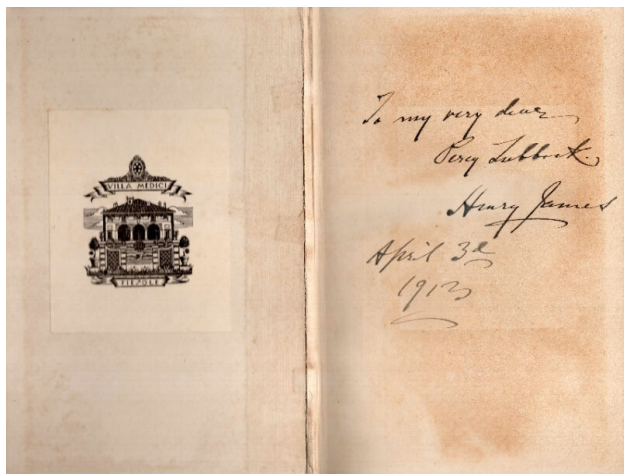 VILLA MEDICI
FIESOLE
To my very dear
Percy Lubbock.
Henry James
April 3d
1913